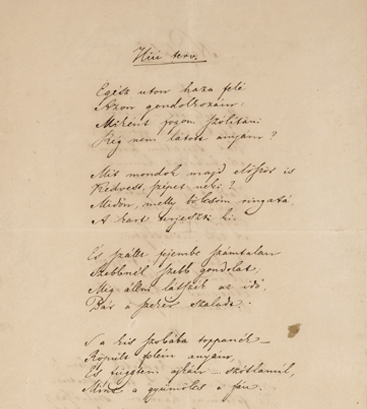 Füsti terv.
Egész uton haza felé
Azon gondolkozám:
Miként fogom szólítani
Rég nem látott anyám?
Mit mondok majd először is
Kedvest, szépet neki?
Midőn, melly bölcsőm ringatá,
A kart terjeszti ki.
És szállt fejembe számtalan
Szebbnél szebb gondolat,
Mig állni látszék az idő,
Bár a szekér szaladt.
S a kis szobába toppanék –
Röpűlt felém anyám,
És függtem ajkán – szótlanúl,
Mint a gyümölcs a fán.